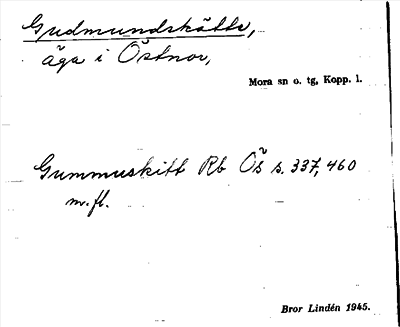 Gudmundskätte,
äga i Östnor,
Mora sn o. tg, Kopp. l.
Gummuskitt Rb Ös s. 337, 460
m.fl.
Bror Lindén 1945.